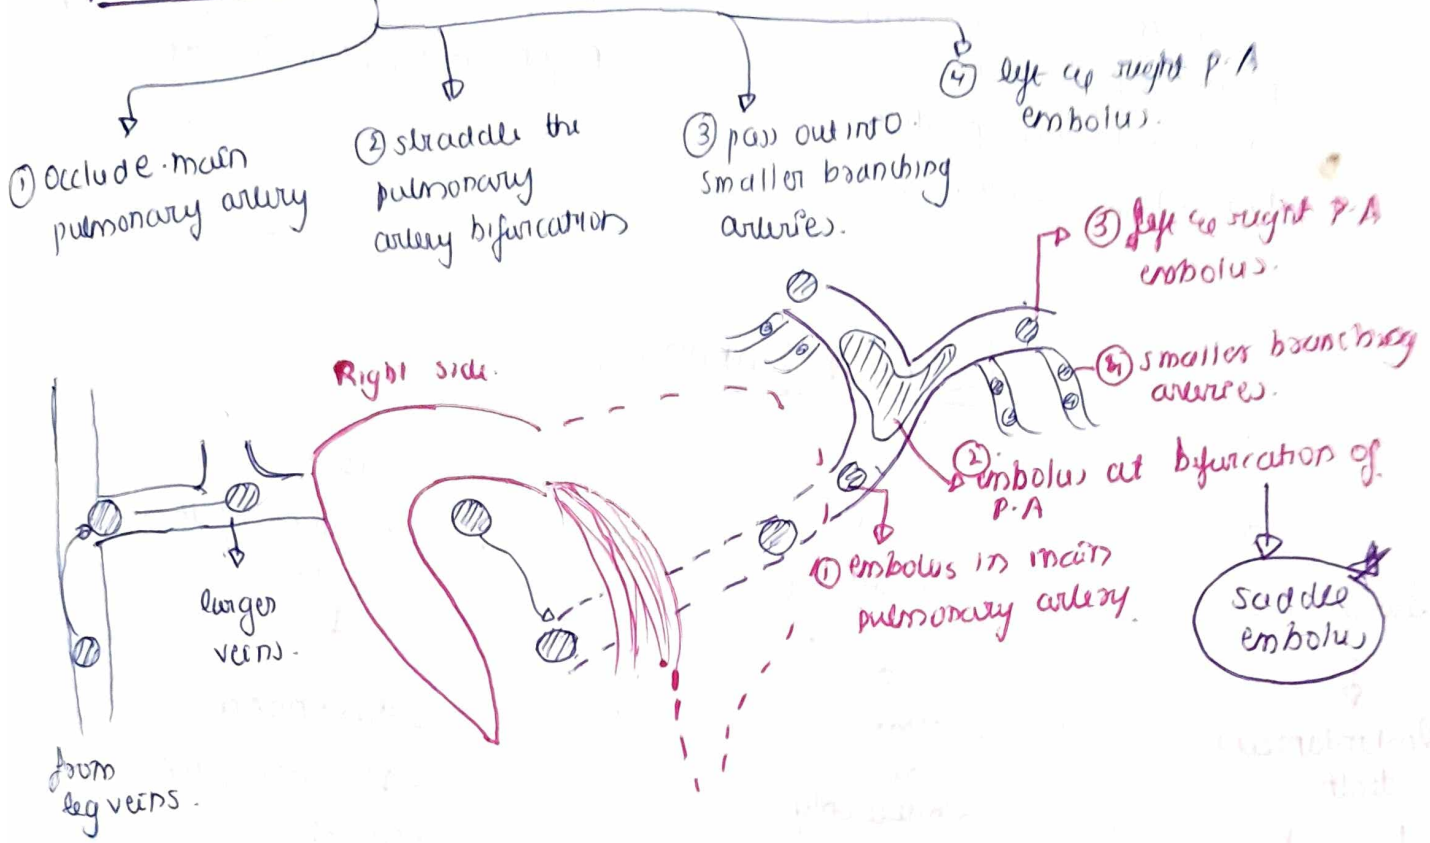 ① Occlude main
pulmonary artery
② straddle the
pulmonary
artery bifurcation
③ pass out into
smaller branching
arteries.
④ left or right P.A
embolus.
Right side.
③ left or right P.A
embolus.
④ smaller branching
arteries.
② embolus at bifurcation of
P.A
① embolus in main
pulmonary artery.
saddle
embolus
larger
veins.
from
leg veins.